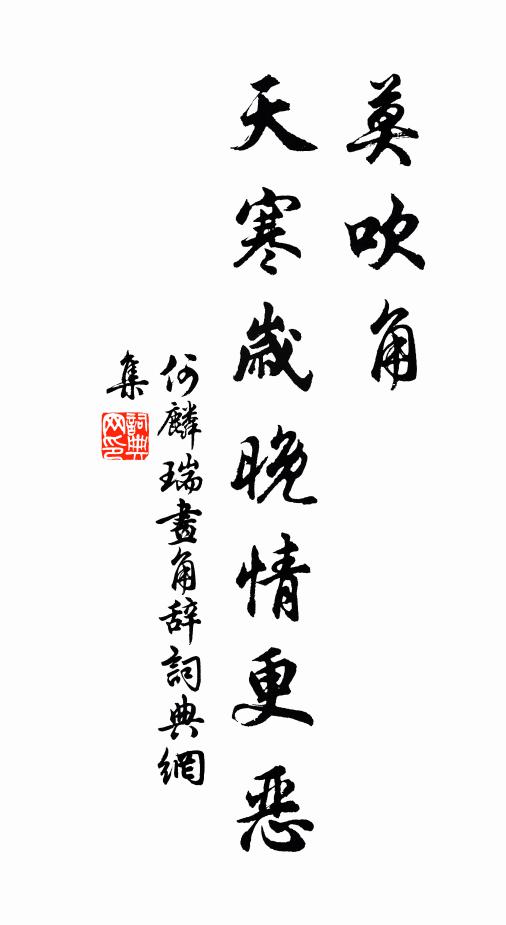 莫吹角
天寒歲晚情更惡
何麟瑞畫角辭詞典網
集
詞典
网印